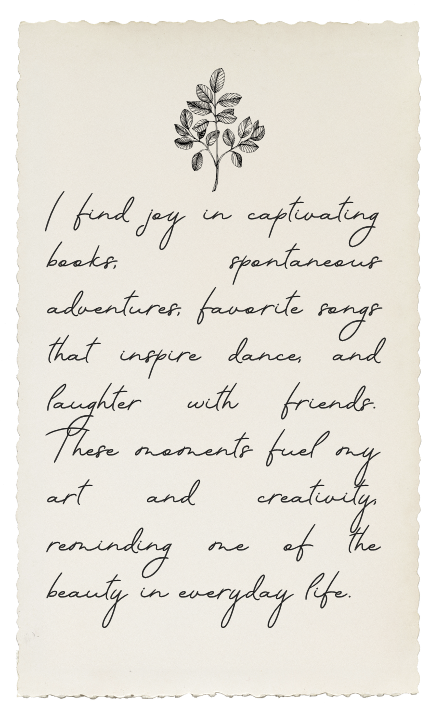 I find joy in captivating
books, spontaneous
adventures, favorite songs
that inspire dance, and
laughter with friends.
These moments fuel my
art and creativity,
reminding me of the
beauty in everyday life.